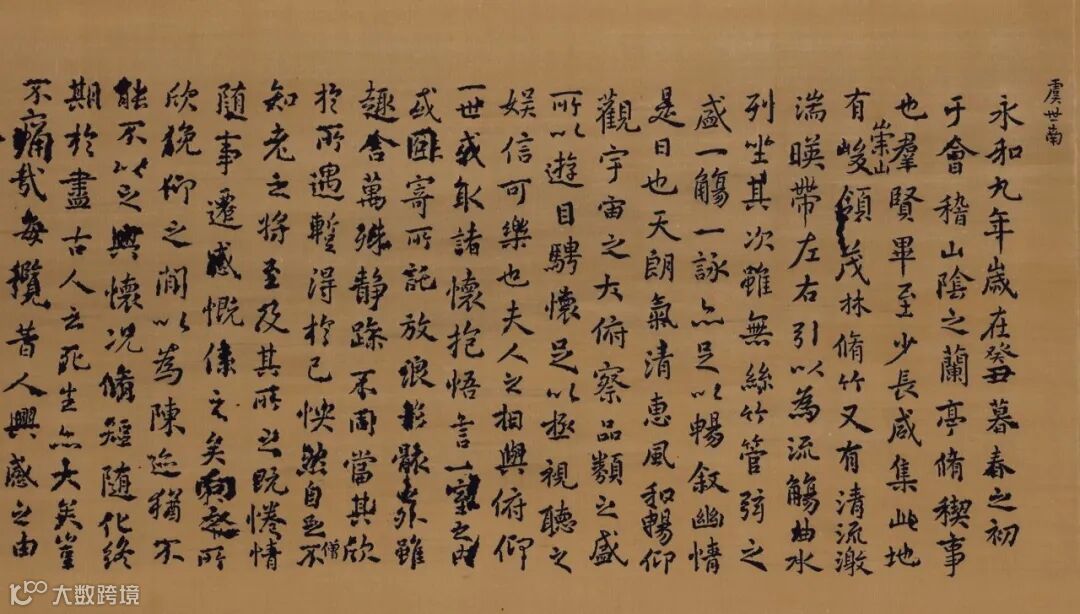 虞世南
永和九年歲在癸丑暮春之初
于會稽山陰之蘭亭脩稧事
也羣賢畢至少長咸集此地
有崇山峻領茂林脩竹又有清流激
湍暎帶左右引以為流觴曲水
列坐其次雖無絲竹管弦之
盛一觴一詠亦足以暢叙幽情
是日也天朗氣清惠風和暢仰
觀宇宙之大俯察品類之盛
所以遊目騁懷足以極視聽之
娛信可樂也夫人之相與俯仰
一世或取諸懷抱悟言一室之內
或因寄所託放浪形骸之外雖
趣舍萬殊静躁不同當其欣
於所遇蹔得於己怏然自足不
僧
知老之將至及其所之既惓情
隨事遷感慨係之矣向之所
欣俛仰之閒以為陳迹猶不
能不以之興懷況脩短隨化終
期於盡古人云死生亦大矣豈
不痛哉每攬昔人興感之由
大数跨境